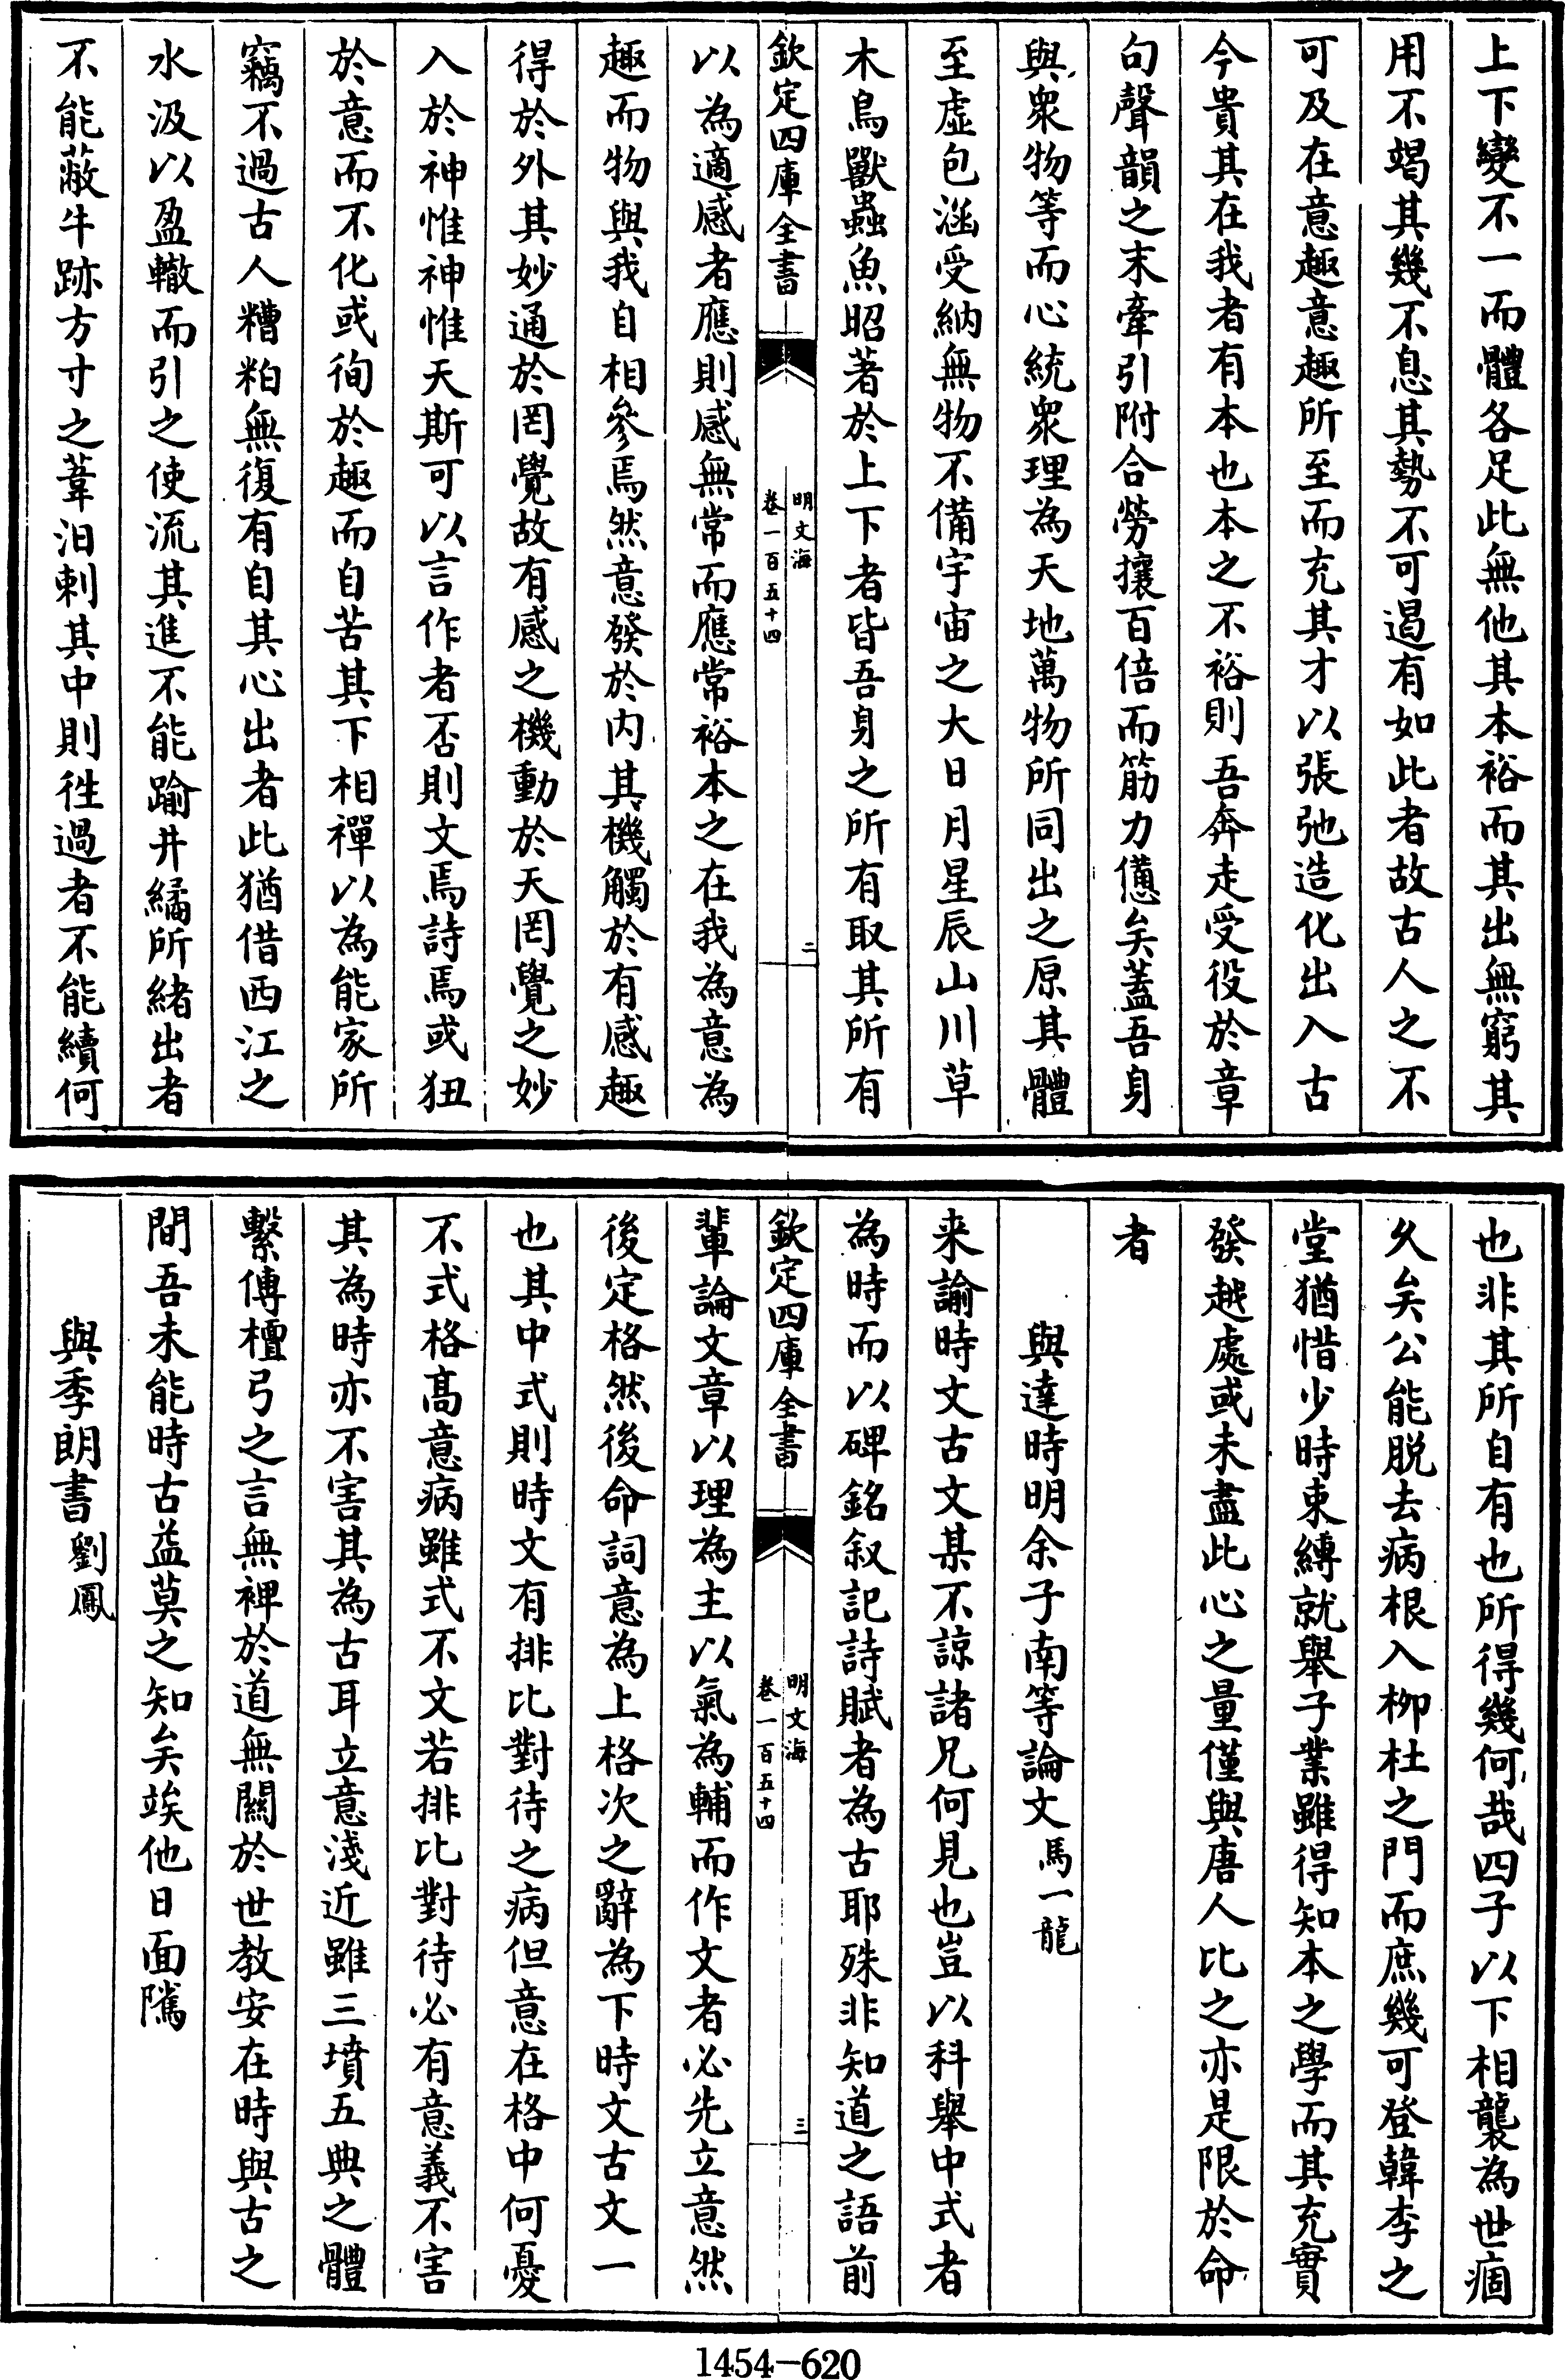 上下變不一而體各足此無他其本裕而其出無窮其
用不竭其幾不息其勢不可遏有如此者故古人之不
可及在意趣意趣所至而充其才以張弛造化出入古
今貴其在我者有本也本之不裕則吾奔走受役於章
句聲韻之末牽引附合勞攘百倍而筋力憊矣蓋吾身
與衆物等而心統衆理為天地萬物所同出之原其體
至虛包涵受納無物不備宇宙之大日月星辰山川草
木鳥獸蟲魚昭著於上下者皆吾身之所有取其所有
欽定四庫全書
明文海
卷一百五十四
二
以為適感者應則感無常而應常裕本之在我為意為
趣而物與我自相參焉然意發於内其機觸於有感趣
得於外其妙通於罔覺故有感之機動於天罔覺之妙
入於神惟神惟天斯可以言作者否則文焉詩焉或狃
於意而不化或徇於趣而自苦其下相禪以為能家所
竊不過古人糟粕無復有自其心出者此猶借西江之
水汲以盈轍而引之使流其進不能踰井繘所緒出者
不能蔽牛跡方寸之葦汨刺其中則徃過者不能續何
也非其所自有也所得幾何哉四子以下相襲為世痼
久矣公能脱去病根入栁杜之門而庶幾可登韓李之
堂猶惜少時束縛就舉子業雖得知本之學而其充實
發越處或未盡此心之量僅與唐人比之亦是限於命
者
與達時明余子南等論文馬一龍
来諭時文古文某不諒諸兄何見也豈以科舉中式者
為時而以碑銘叙記詩賦者為古耶殊非知道之語前
欽定四庫全書
明文海
卷一百五十四
三
輩論文章以理為主以氣為輔而作文者必先立意然
後定格然後命詞意為上格次之辭為下時文古文一
也其中式則時文有排比對待之病但意在格中何憂
不式格髙意病雖式不文若排比對待必有意義不害
其為時亦不害其為古耳立意淺近雖三墳五典之體
繫傳檀弓之言無裨於道無關於世教安在時與古之
間吾未能時古益莫之知矣竢他日面隲
與季朗書劉鳳
1454-620